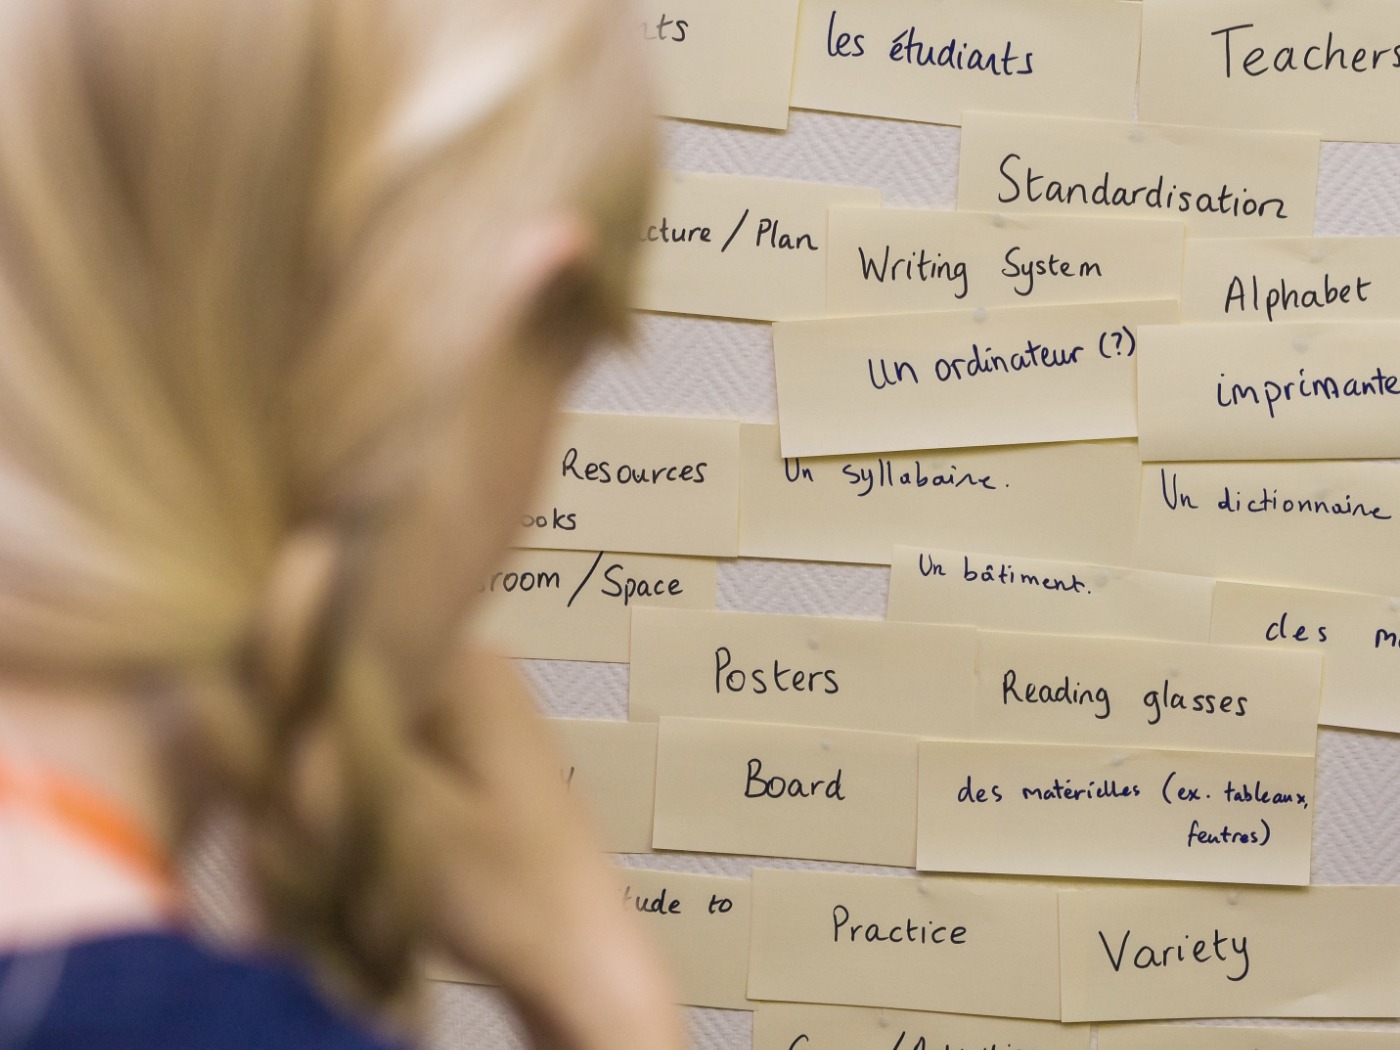 les étudiants
Teachers
Standardisation
/ Plan
Writing System
Alphabet
un ordinateur (?)
imprimante
Resources
Un syllabaire.
Un dictionnaire
/ Space
Un bâtiment.
des
Posters
Reading glasses
Board
des matérielles (ex. tableaux,
fentres)
to
Practice
Variety